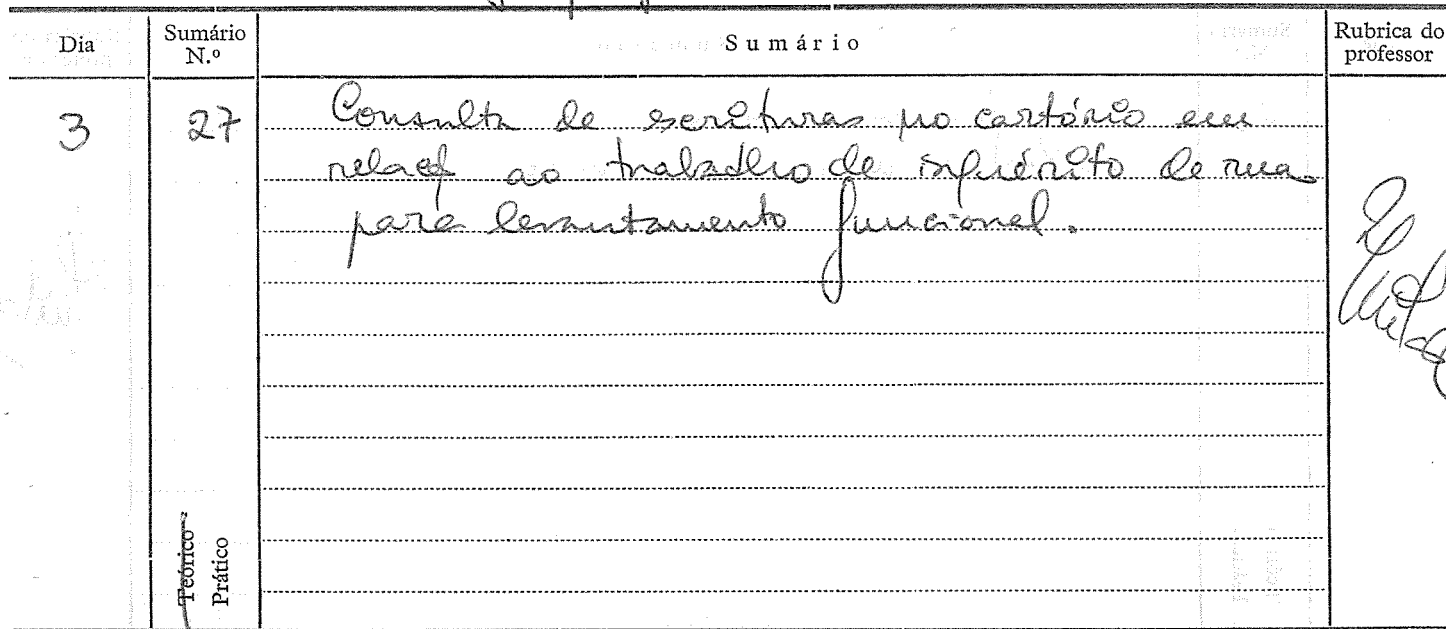 Dia
Sumário N.º
Sumário
Rubrica do professor
3
27
Consulta de escrituras no cartório em
relaçãf ao trabalho de inquérito de rua
para levantamento funcional.
Teórico
Prático